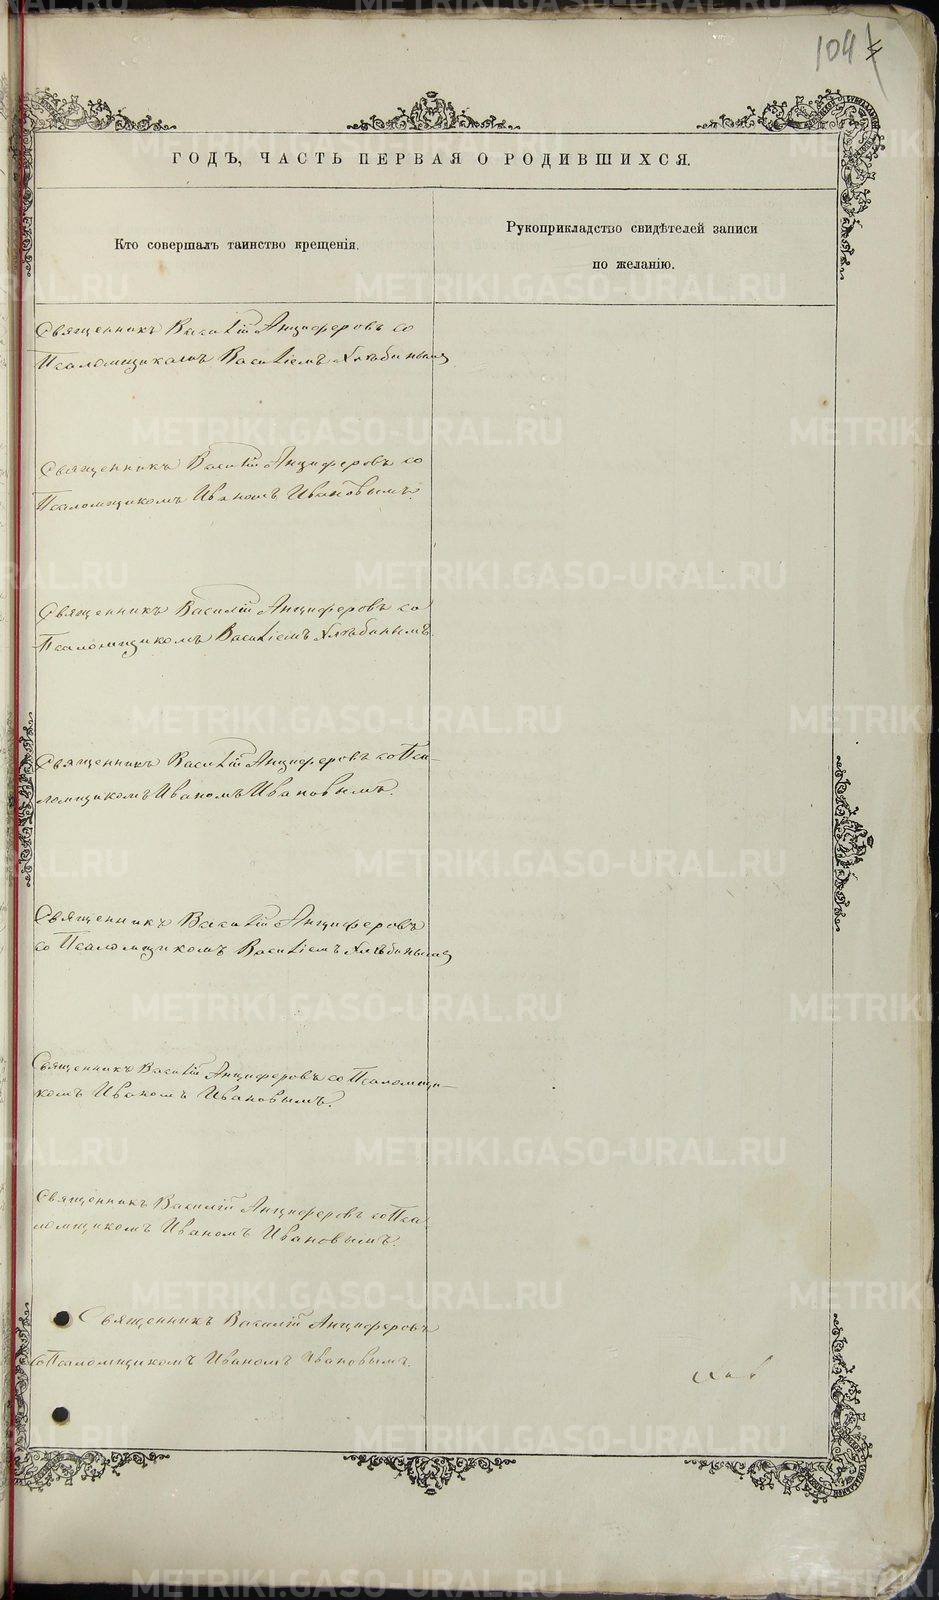 104
ГОДЪ, ЧАСТЬ ПЕРВАЯ О РОДИВШИХСЯ.
Кто совершалъ таинство крещенія.
Рукоприкладство свидѣтелей записи
по желанію.
Священникъ Василій Анциферовъ со
Псаломщикомъ Василіемъ Хлѣбинымъ
Священникъ Василій Анциферовъ со
Псаломщикомъ Иваномъ Ивановымъ.
Священникъ Василій Анциферовъ со
Псаломщикомъ Василіемъ Хлѣбинымъ.
Священникъ Василій Анциферовъ со Пса-
ломщикомъ Иваномъ Ивановымъ.
Священникъ Василій Анциферовъ
со Псаломщикомъ Василіемъ Хлѣбинымъ
Священникъ Василій Анциферовъ со Псаломщи-
комъ Иваномъ Ивановымъ.
Священникъ Василій Анциферовъ со Пса
ломщикомъ Иваномъ Ивановымъ.
Священникъ Василій Анциферовъ
со Псаломщикомъ Иваномъ Ивановымъ.
METRIKI.GASO-URAL.RU